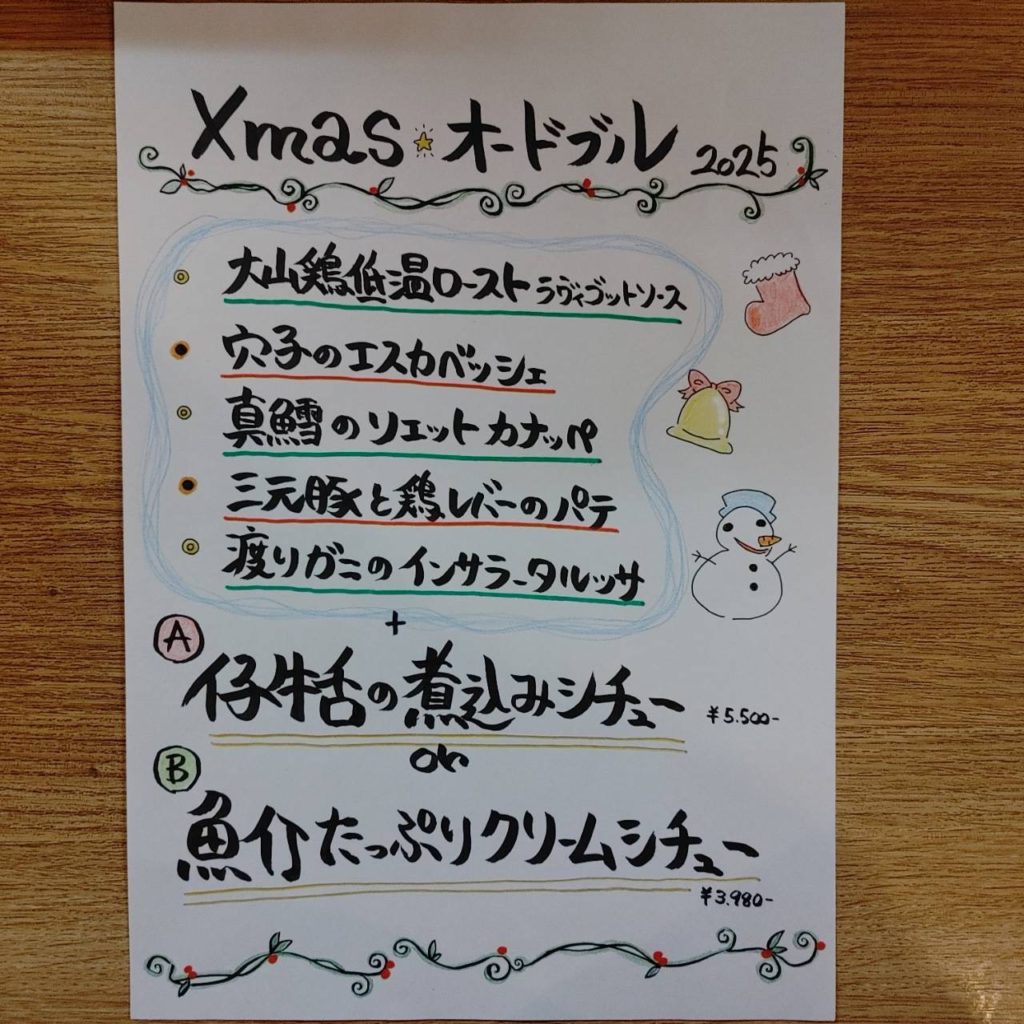 Xmas オードブル 2025
大山鶏低温ロースト ラヴィゴットソース
穴子のエスカベッシェ
真鱈のソエット カナッペ
三元豚と鶏レバーのパテ
渡りガニのインサラータルッサ
+
A
仔牛舌の煮込みシチュー ¥5.500-
or
B
魚介たっぷりクリームシチュー
¥3.980-